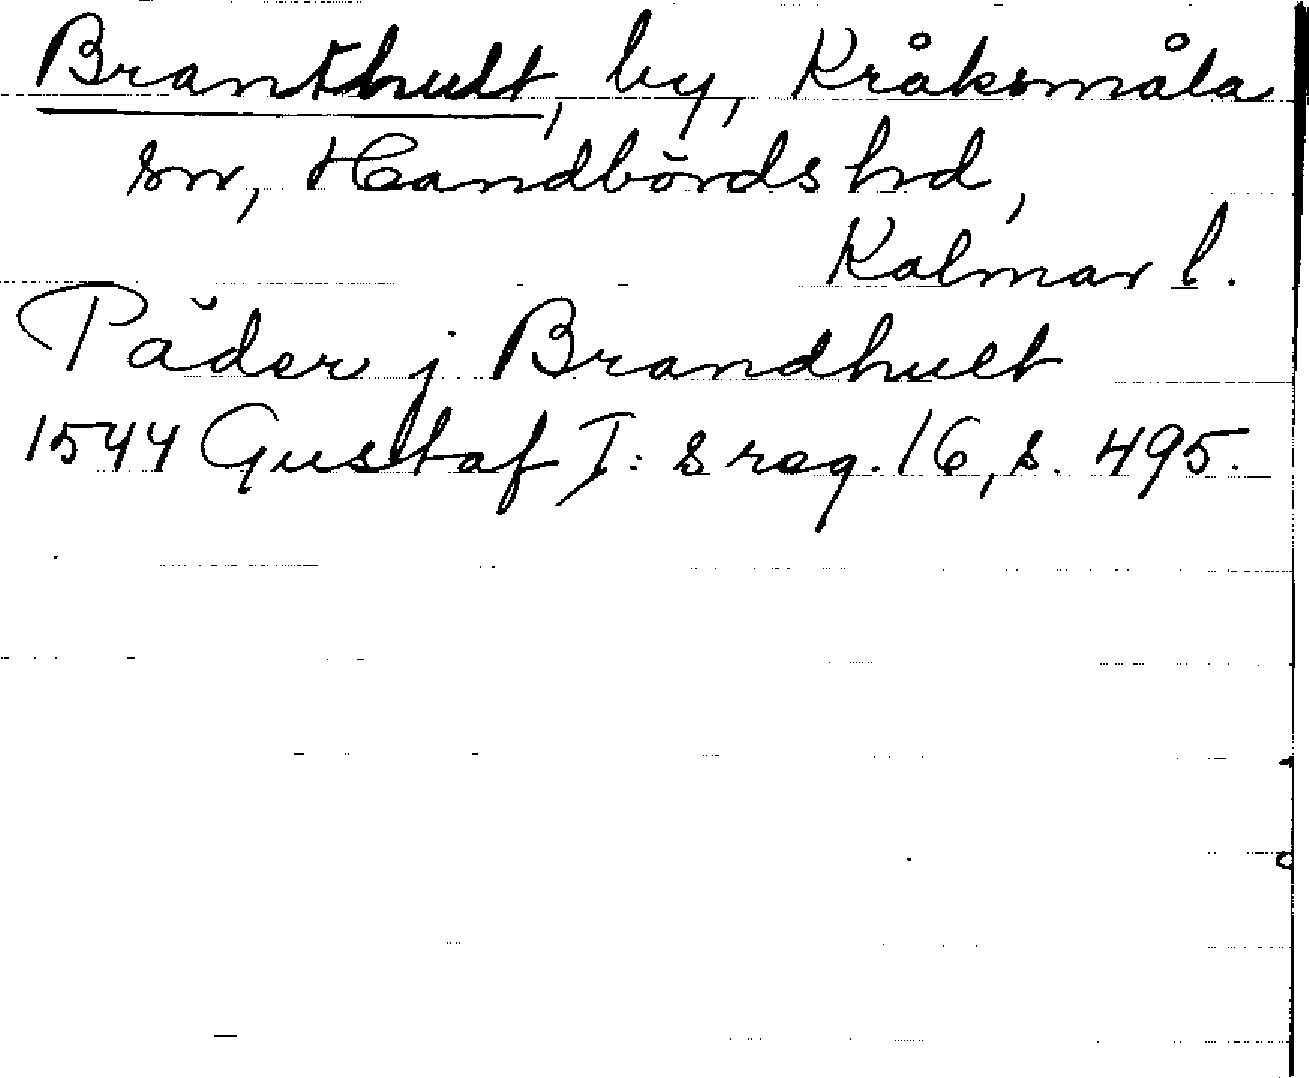 Branthult, by, Kråksmåla
sn, Handbörds hd,
Kalmar l.
Päder j Brandhult
1544 Gustaf I:s reg. 16, s. 495.